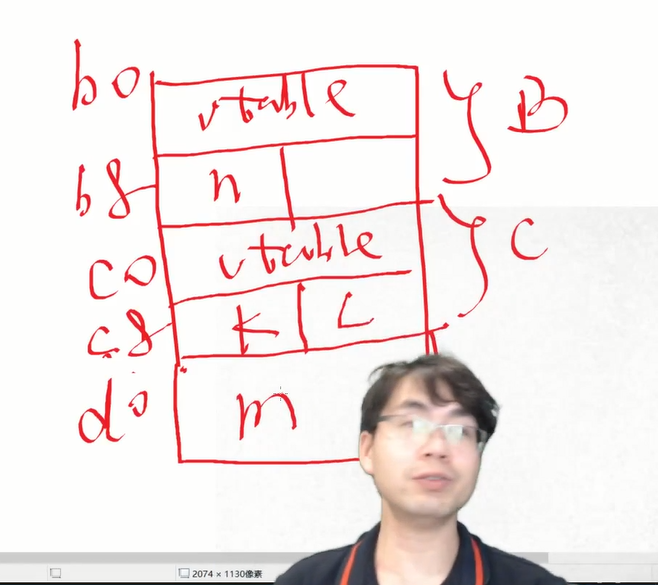 b0 vtable B
b8 n
c0 vtable C
c8 k L
d0 m
2074 × 1130像素